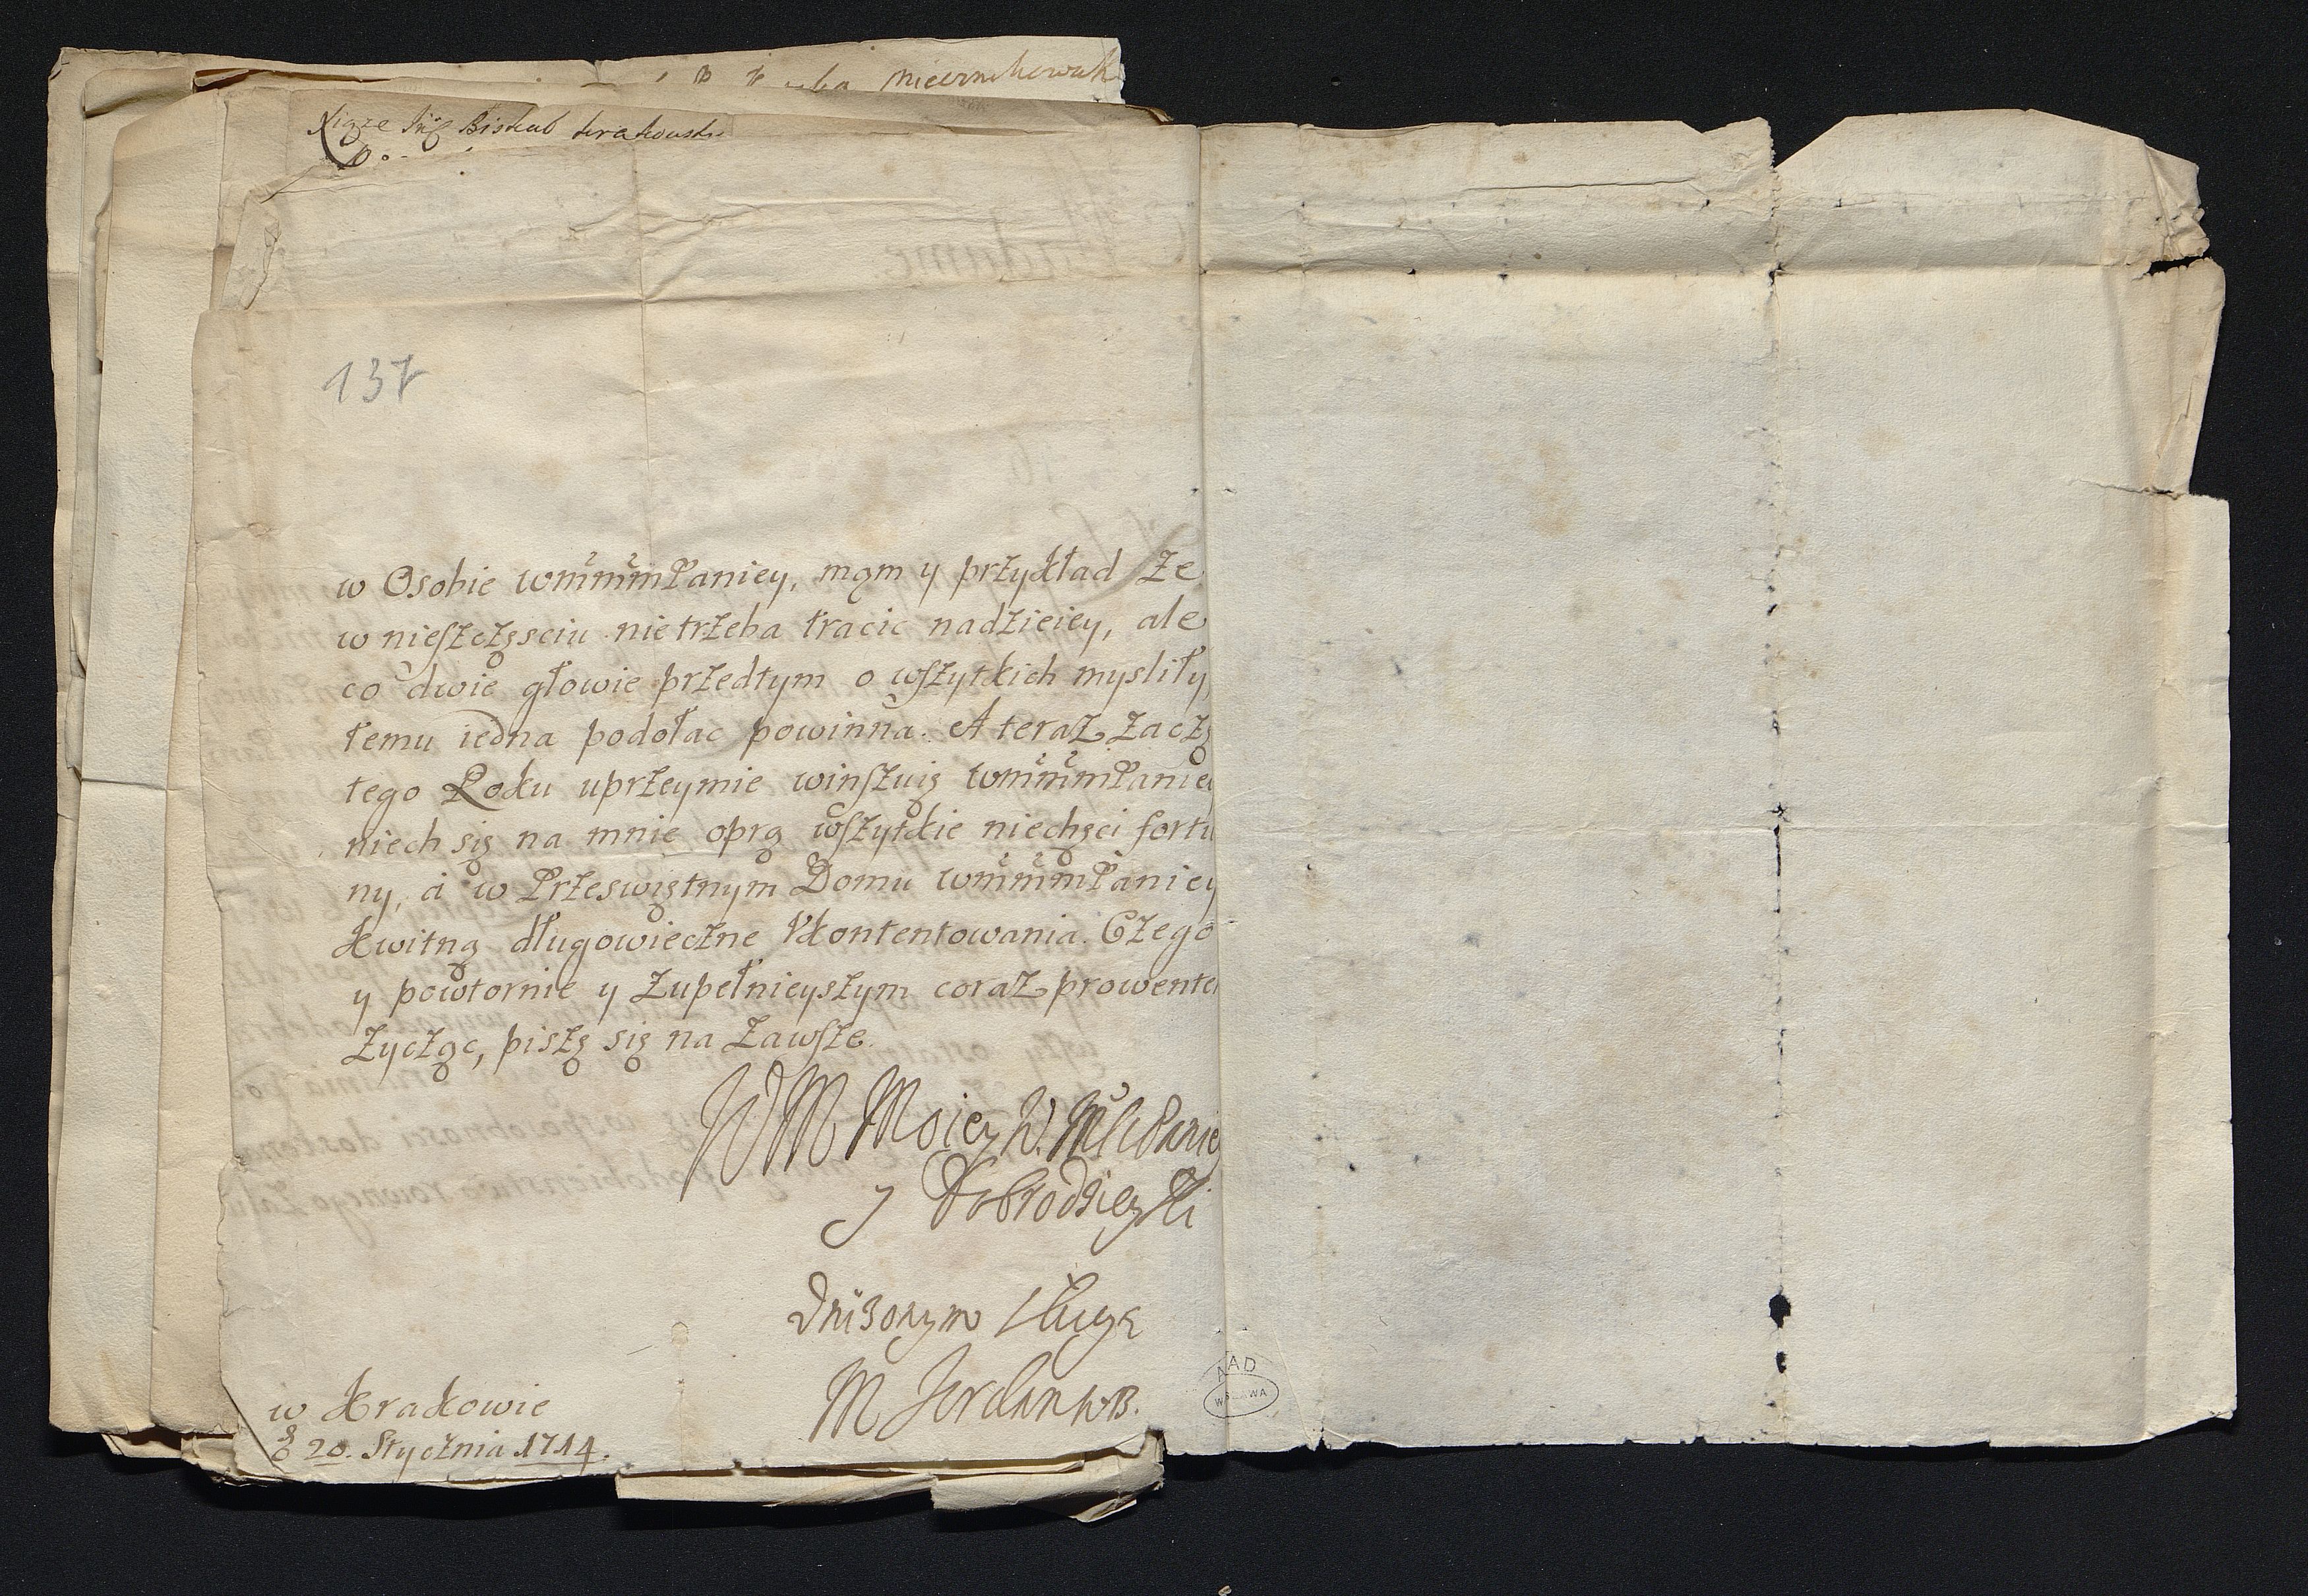 Biskub krakowski
137
w Osobie wmmmPaniey, mąm y przykład że
w nieszczęsciu nie trzeba tracic nadzieiey, ale
co dwie głowie przedtym o wszytkich mysliły,
temu iedna podołac powinna. A teraz zaczę
tego Roku uprzeymie winszuię wmmmPaniey
niech się na mnie oprą wszytkie niechęci fortu
ny, a w Przeswiętnym Domu wmmmPaniey
kwitną długowieczne Ukontentowania. Czego
y powtornie y zupełnieyszym coraz prowente
życząc, piszę się na zawsze.
WM Moiey W. M Paniey
y Dobrodzieyki
Uniżonym sługą
M Jordan WB.
w Krakowie
d 20. Stycznia 1714.
AAD